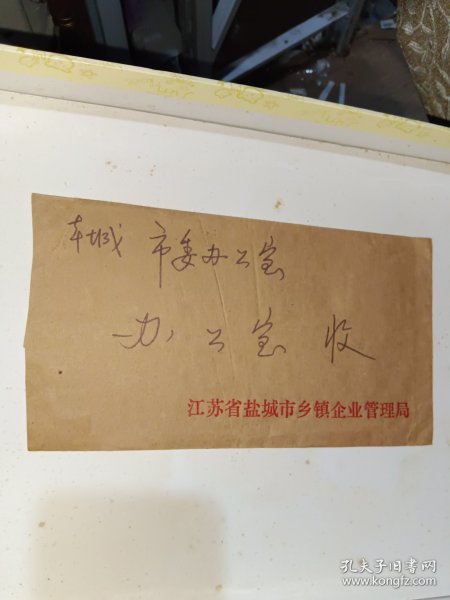 本城 市委办公室
办公室 收
江苏省盐城市乡镇企业管理局
孔夫子旧书网
www.kongfz.com